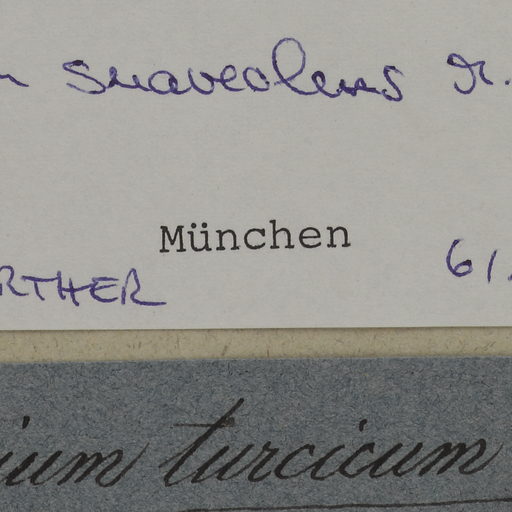 suaveolens
München
RTHER 61
ium turcicum